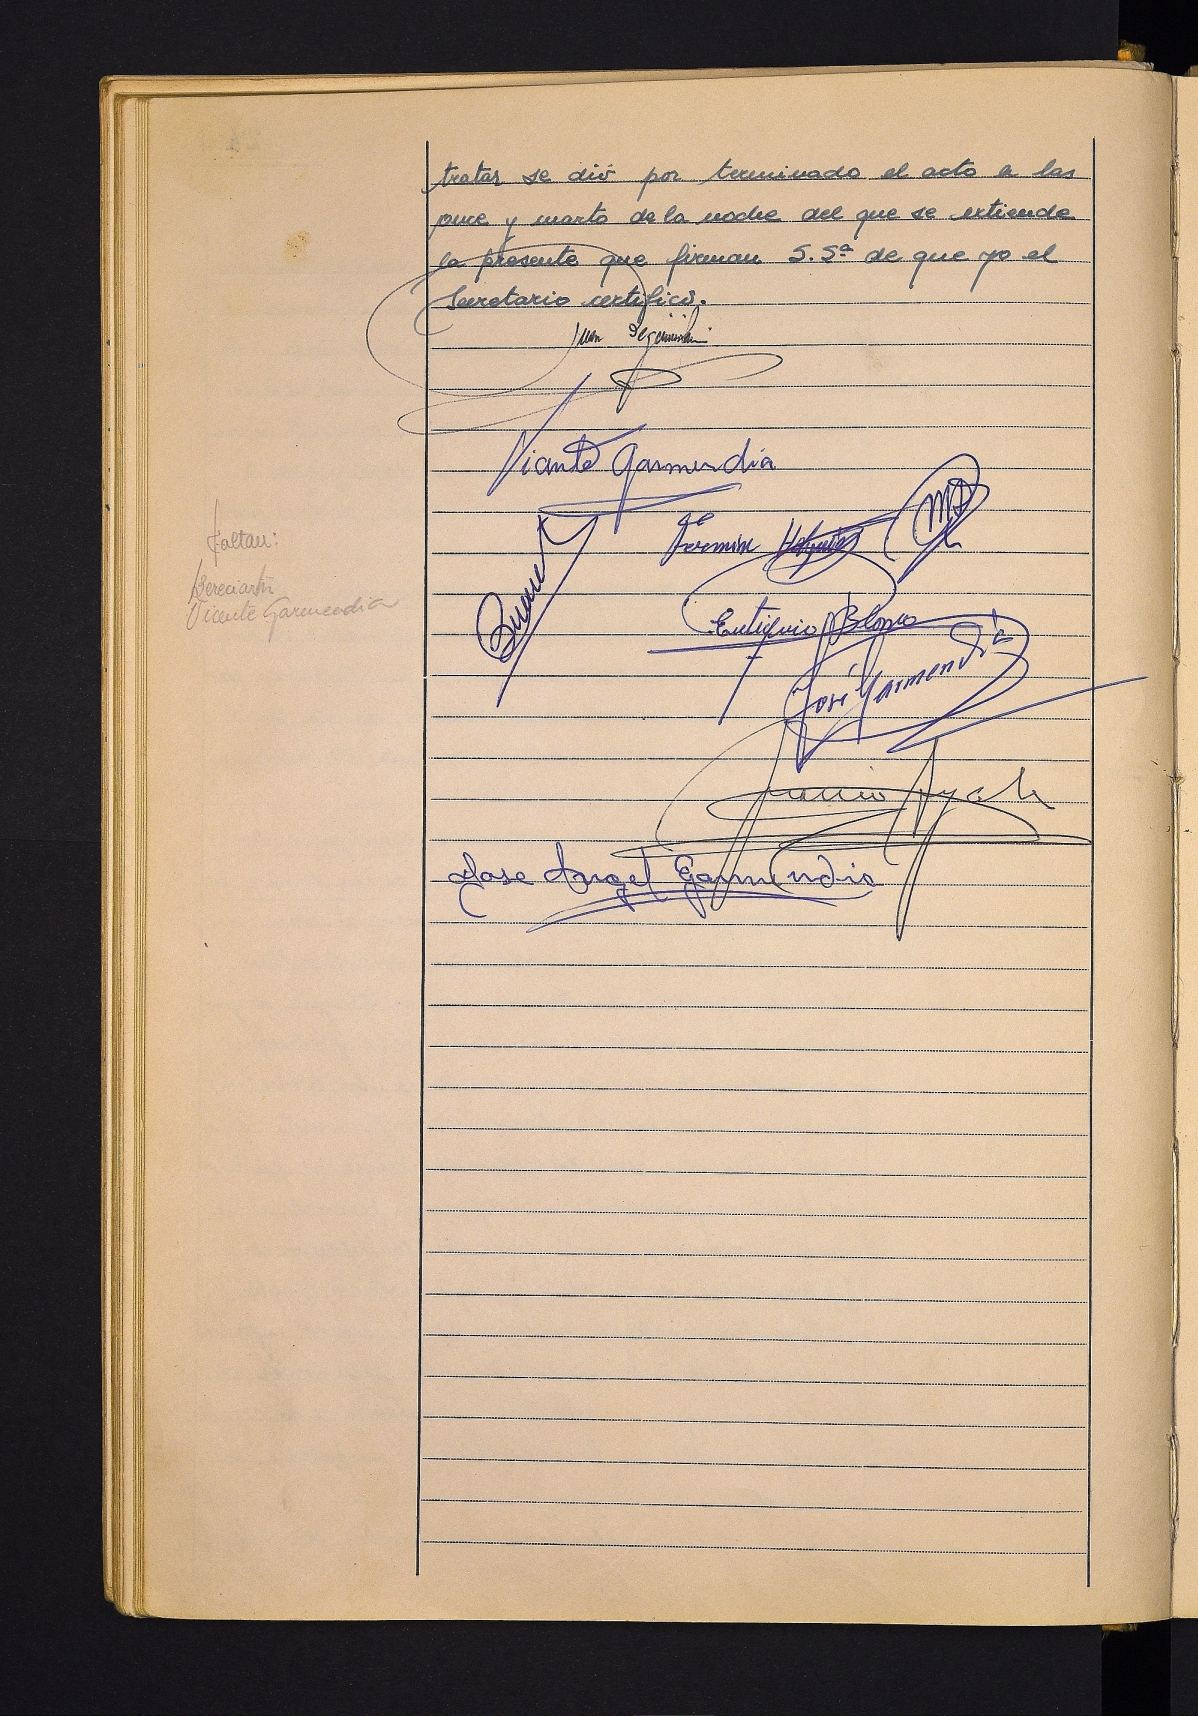 tratar se dió por terminado el acto a las
once y cuarto de la noche del que se extiende
la presente que firman S. Sª de que yo el
Secretario certifico.
Juan
Vicente Garmendia
Fermin
Eutiquio Blanco
José Garmendia
Jose Angel Garmendia
Faltan:
Bereciartu
Vicente Garmendia